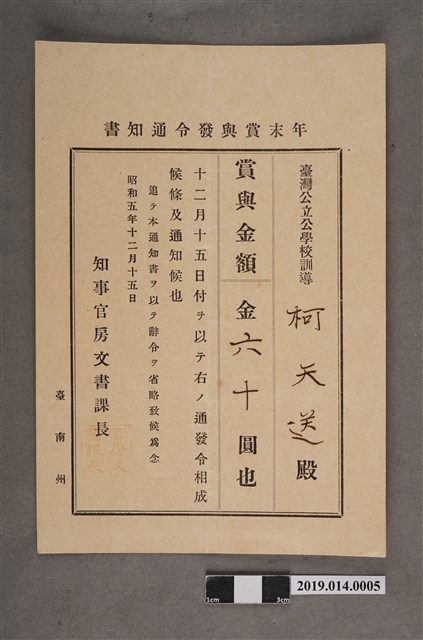 年末賞與發令通知書
臺灣公立公學校訓導
柯天送殿
賞與金額 金六十圓也
十二月十五日付ヲ以テ右ノ通發令相成
候條及通知候也
追テ本通知書ヲ以テ辭令ヲ省略致候爲念
昭和五年十二月十五日
知事官房文書課長
臺南州
1cm 3cm
2019.014.0005